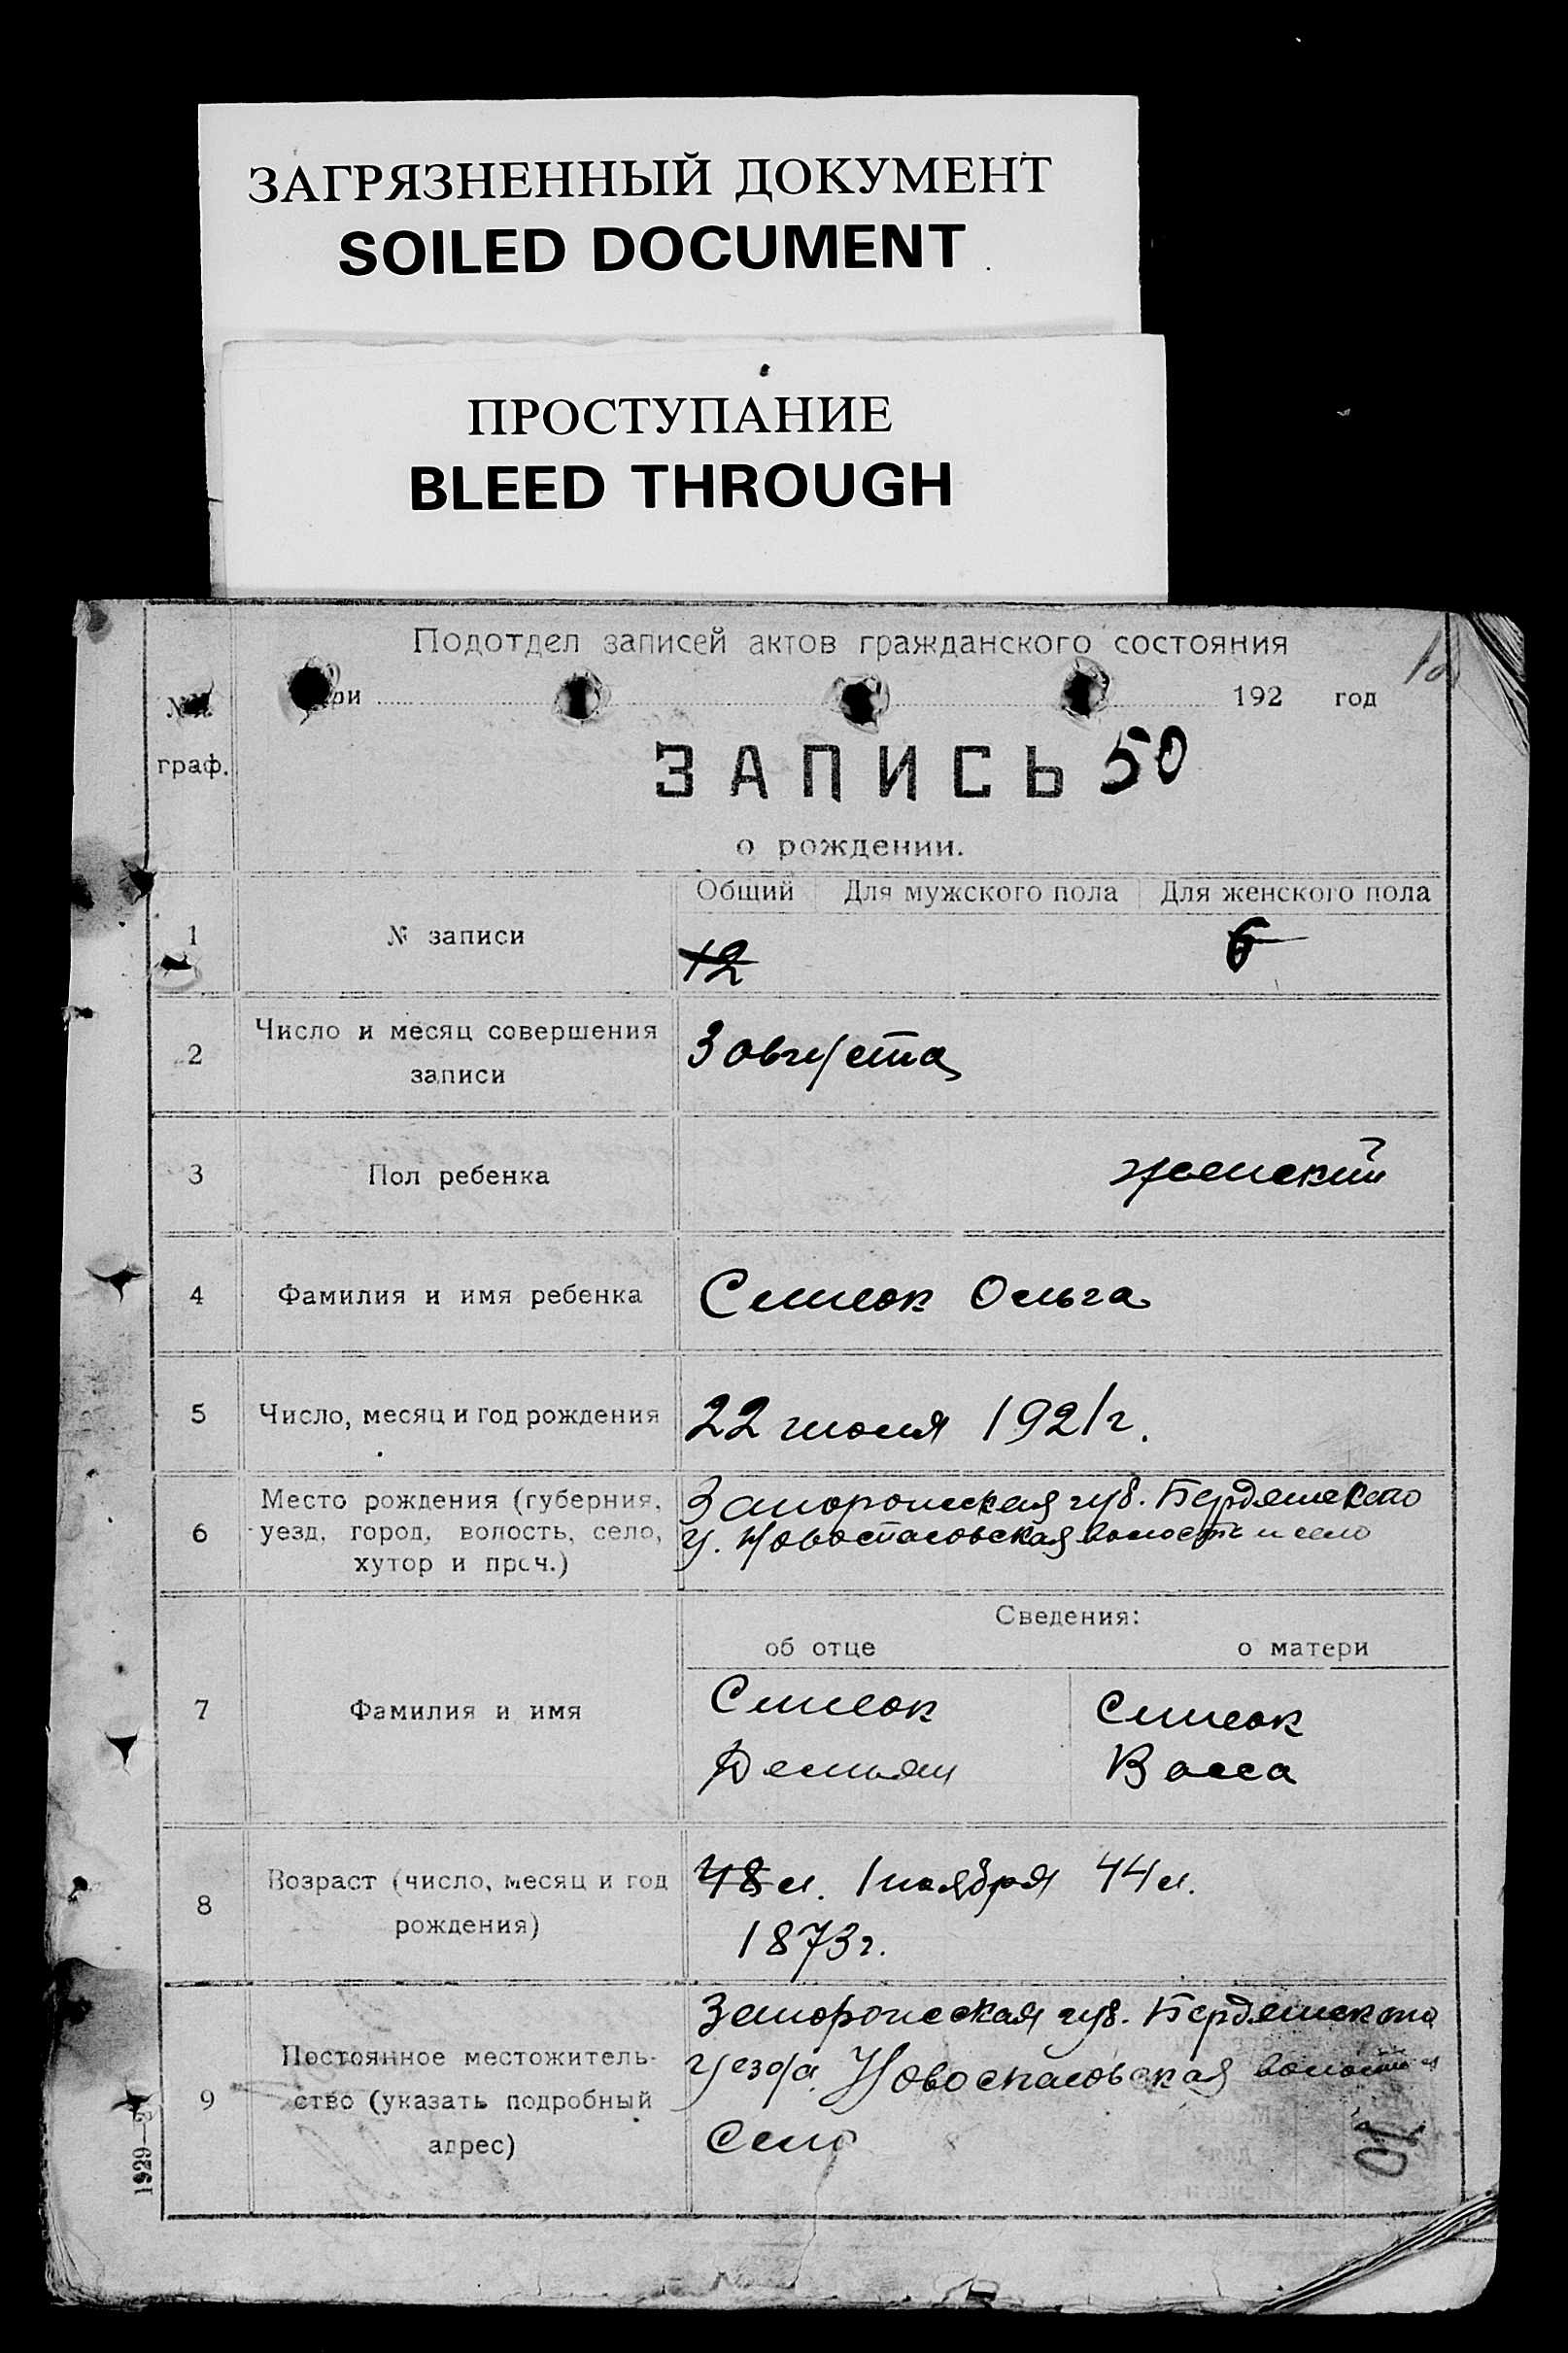 ЗАГРЯЗНЕННЫЙ ДОКУМЕНТ
SOILED DOCUMENT
ПРОСТУПАНИЕ
BLEED THROUGH
Подотдел записей актов гражданского состояния
при 192 год
№№
граф.
ЗАПИСЬ 50
о рождении.
Общий Для мужского пола Для женского пола
1 № записи 12 6
2 Число и месяц совершения
записи
3 августа
3 Пол ребенка женский
4 Фамилия и имя ребенка Ольга
5 Число, месяц и год рождения 22 июня 1921 г.
6 Место рождения (губерния,
уезд, город, волость, село,
хутор и проч.)
Запорожская губ. Бердянского
у. Новоспасовская волость и село
Сведения:
об отце о матери
7 Фамилия и имя
Демьян Васса
8 Возраст (число, месяц и год
рождения)
48 л. 1 ноября 44 л.
1873 г.
9 Постоянное местожитель-
ство (указать подробный
адрес)
Запорожская губ. Бердянского
уезда Новоспасовская волость и
село
1929